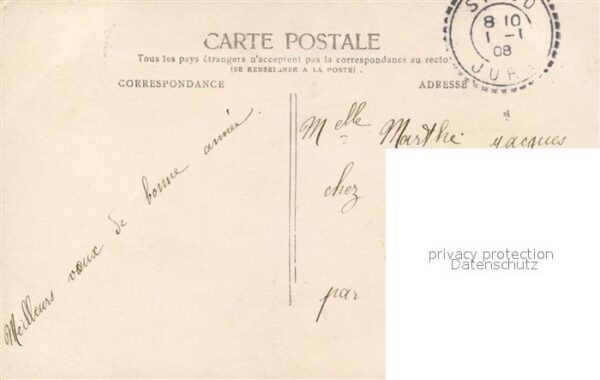 CARTE POSTALE
Tous les pays étrangers n'acceptent pas la correspondance au recto
(SE RENSEIGNER A LA POSTE).
CORRESPONDANCE
ADRESSE
8 10
1 -1
08
JUR
Meilleurs vœux de bonne année.
Melle Marthe Jacques
chez
par
privacy protection
Datenschutz